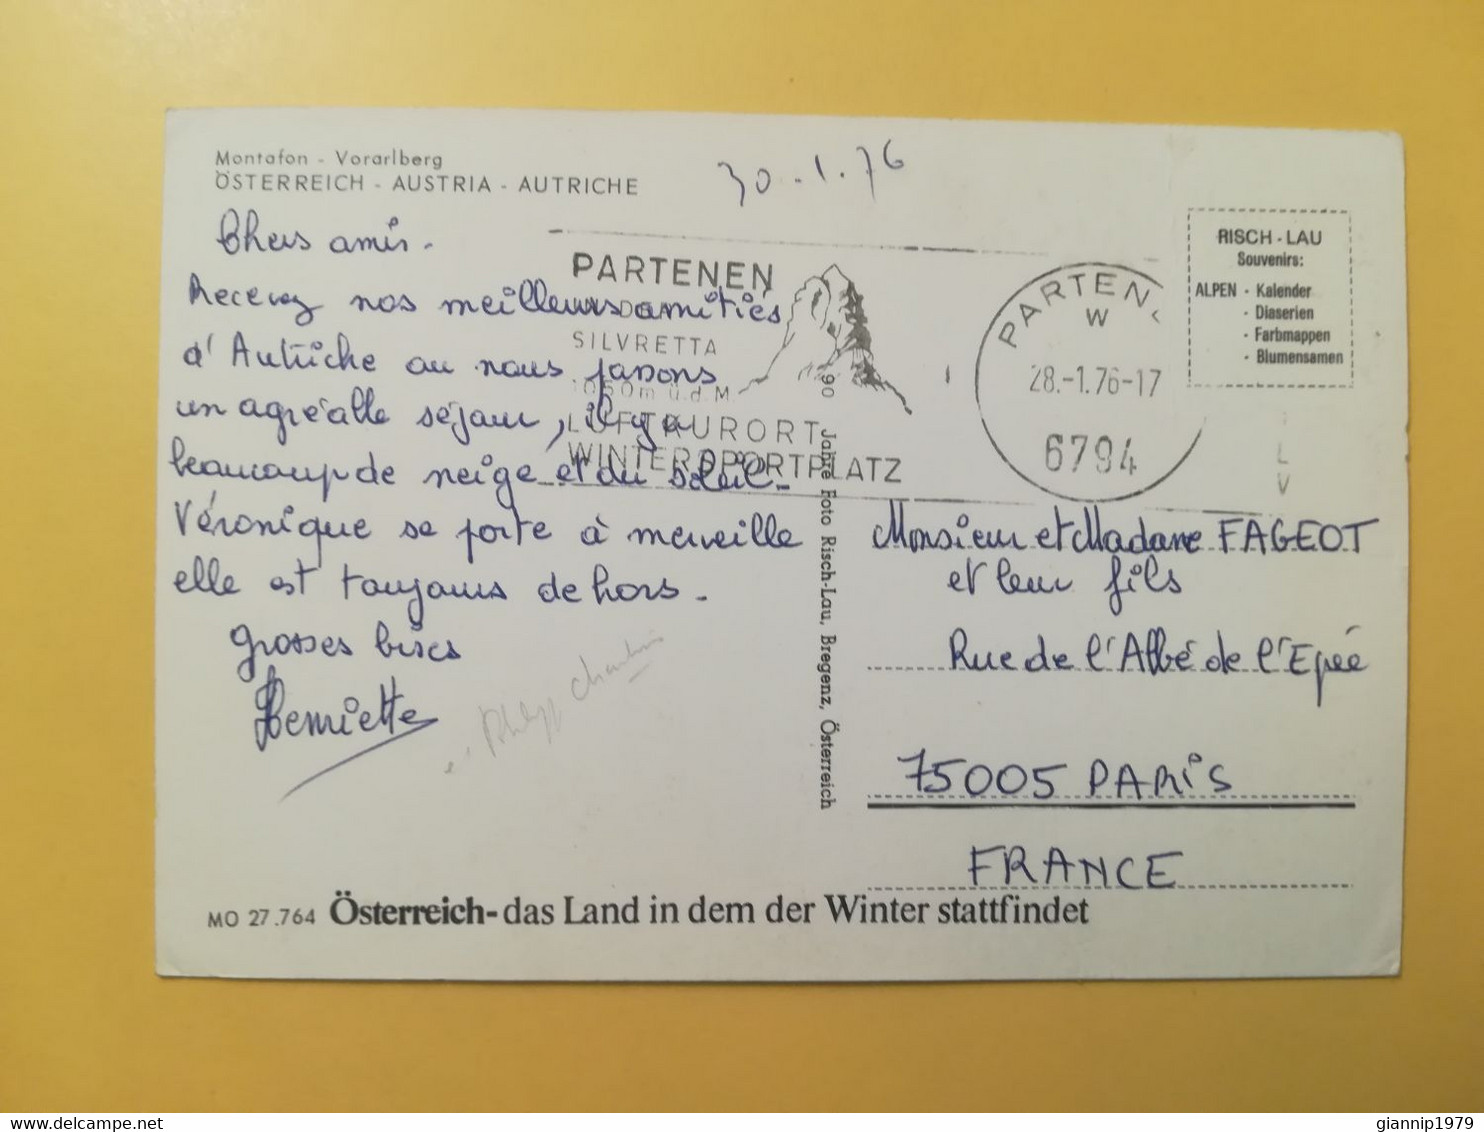 Montafon - Vorarlberg
ÖSTERREICH - AUSTRIA - AUTRICHE
30.-1.76
Chers amis.
Recevez nos meilleurs amitiés
d'Autriche ou nous passons
un agréable séjour, il y a
beaucoup de neige et du soleil.
Véronique se porte à merveille
elle est toujours dehors.
grosses bises
Henriette
PARTENEN
SILVRETTA
1050m ü.d.M
LUFTKURORT
WINTERSPORTPLATZ
PARTEN
W
28.-1.76-17
6794
RISCH - LAU
Souvenirs:
ALPEN - Kalender
- Diaserien
- Farbmappen
- Blumensamen
90 Jahre Foto Risch-Lau, Bregenz, Österreich
Monsieur et Madame FAGEOT
et leur fils
Rue de l'Abbé de l'Epée
75005 PARIS
FRANCE
MO 27.764 Österreich-das Land in dem der Winter stattfindet
giannip1979